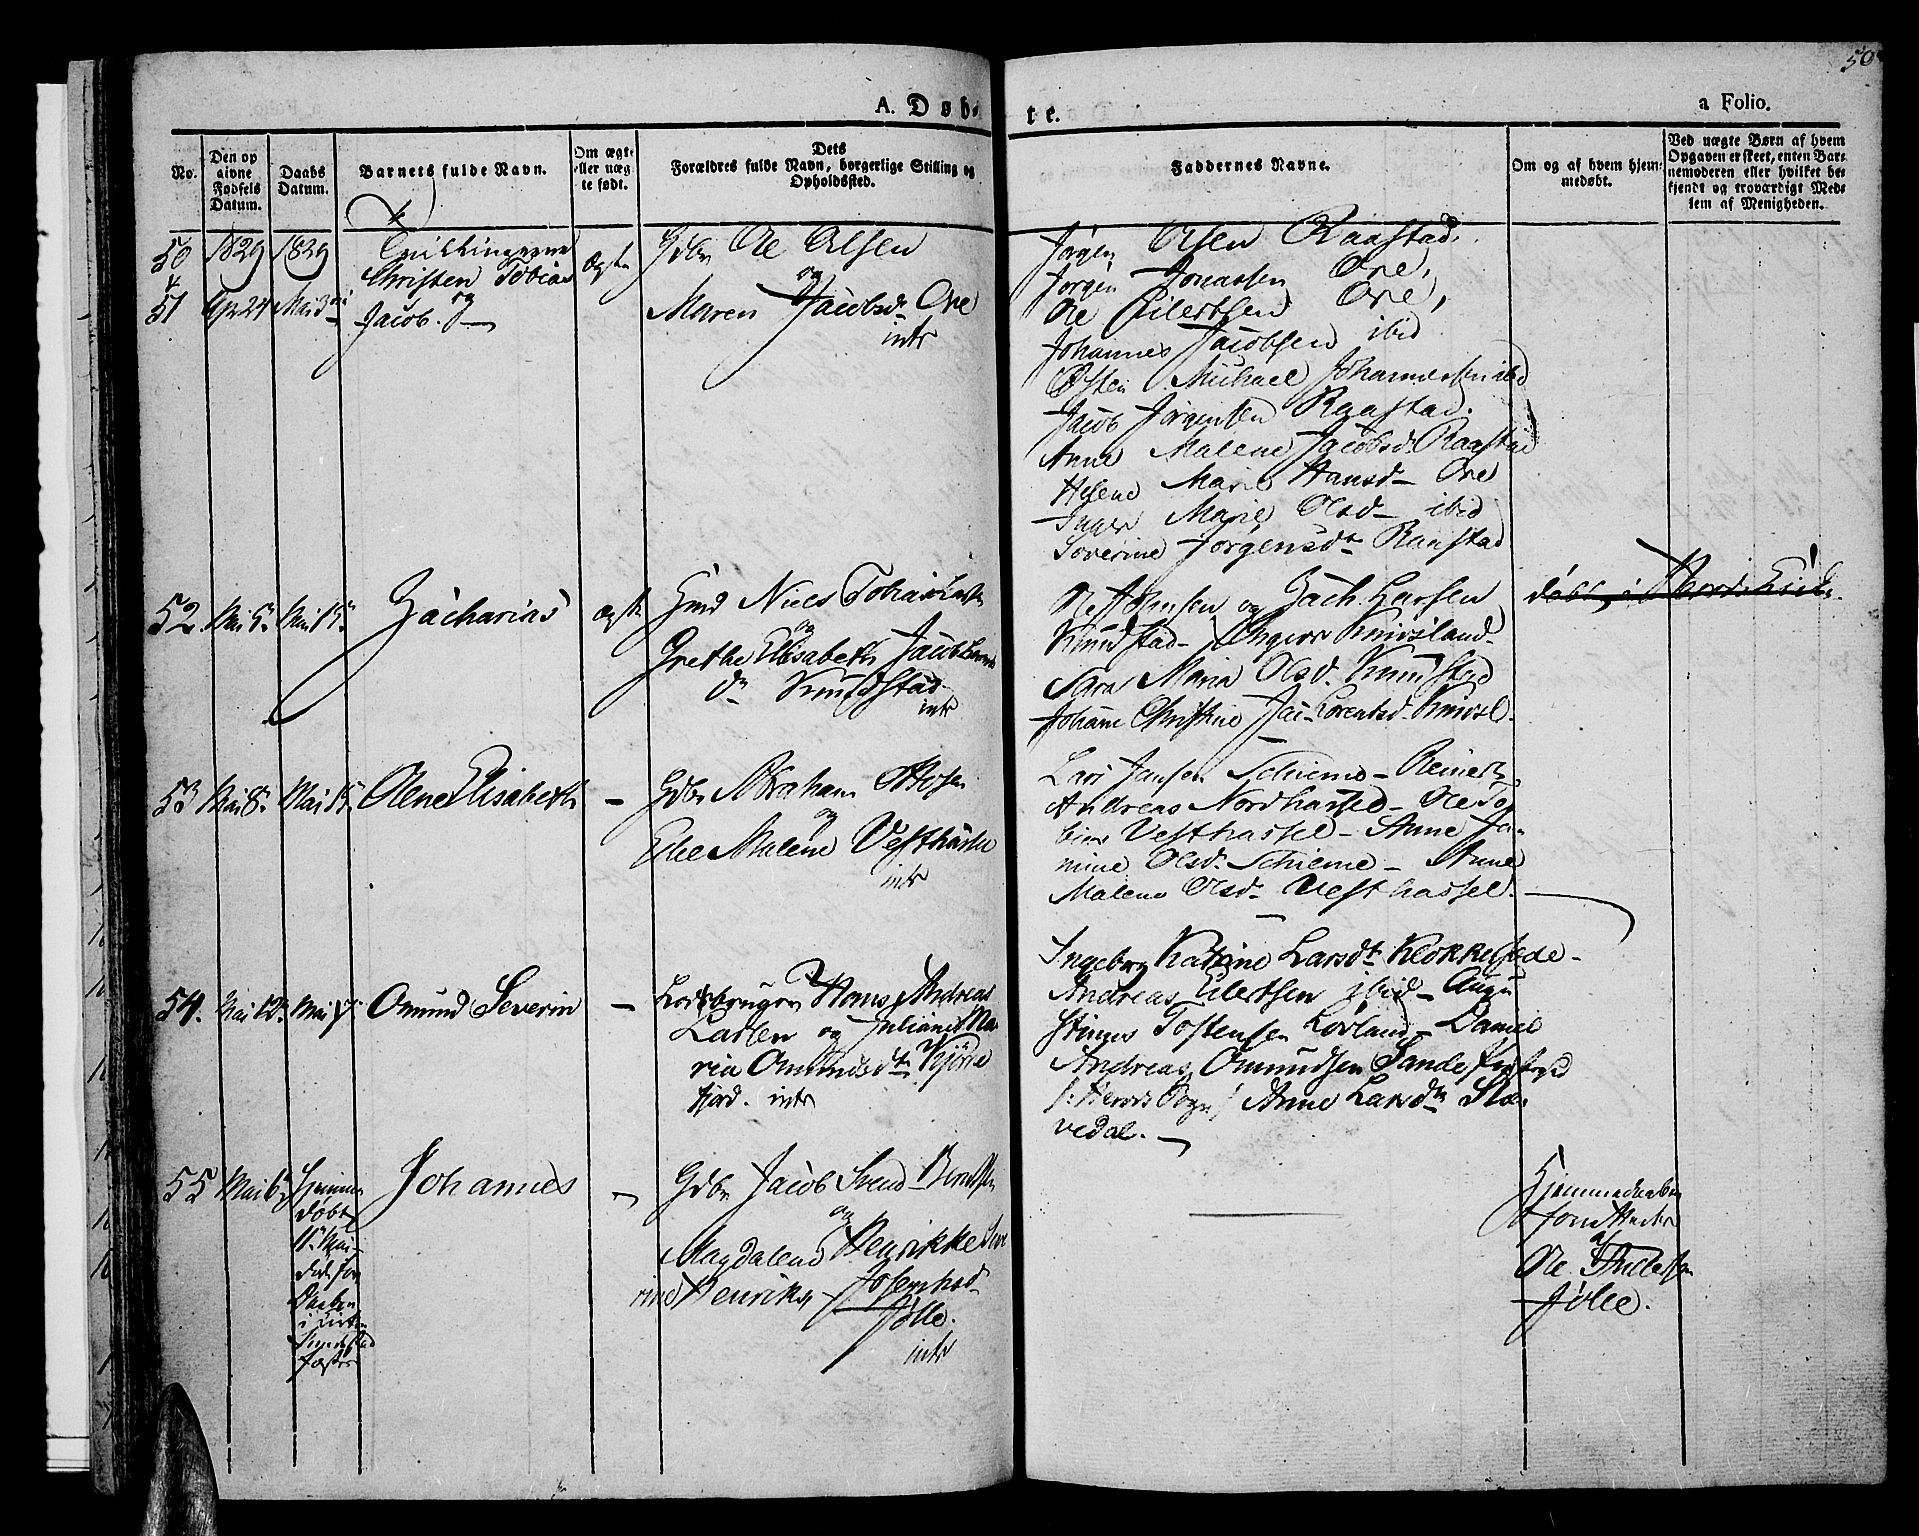 50
A. Døb-
te.
a Folio.
No.
Den op
givne
Fødsels
Datum.
Daabs
Datum.
Barnets fulde Navn.
Om ægte
eller uæg
te født.
Dets
Forældres fulde Navn, borgerlige Stilling og
Opholdssted.
Faddernes Navne.
Om og af hvem hjem-
medøbt.
Ved uægte Børn af hvem
Opgaven er skeet, enten Bar-
nemoderen eller hvilket be-
kjendt og troværdigt Med-
lem af Menigheden.
50
&
51
1829
Apr 24
1829
Mai 3
Tvillingerne
Christen Tobias
og
Jacob.
Ægte
Gdbr Ole Olsen
og
Maren Jacobsd- Ore
intr
Jørgen Olsen Raastad.
Jørgen Jonassen Ore,
Ole Eilertsen Ore,
Johannes Jacobsen ibid
Osten Michael Johannessen ibid
Jacob Jørgensen Raastad.
Anne Malene Jacobsd. Raastad
Helene Marie Hansd- Ore
Inger Marie Olsd- ibid
Soverine Jørgensdtr Raastad
52.
Mai 5.
Mai 15.
Zacharias
ægte
Niels Tobias Larsen
og
Grethe Elisabeth Jacob
Knudstad
intr
og Zach. Larsen
Knudstad-
Sara Maria Olsd. Knudstad
Johanne Christine Jac- Lorentsd-
døbt i
53
Mai 8.
Mai 15.
Olene Elisabeth
-
Gdbr Abraham Olsen
og
Edle Malene Vesthassel
intr
Lars Jansen Schieme- Reinert
Andreas Nordhassel- Ole To-
bias Vesthassel- Anne Ja-
mine Olsd. Schieme- Anne
Malene Olsd- Vesthassel.-
54.
Mai 12.
Mai 17
Omund Severin
-
Lodsbruger Hans Andreas
Larsen og Juliane Ma-
ria Omundsdtr
fjord. intr
Ingeborg Katrine Larsdtr Klokkehede-
Andreas Eilertsen ibid- Augu
stinus Tostensen Lovland- Daniel
Andreas Omundsen Sande
/: Herods Sogn/ Anne Larsdtr Sko-
vedal.-
55
Mai 6
Hjemme
døbt
11. Mai
død før
Daaben
i
Johannes
-
Gdbr Jacob Svend Berntsen
og
Magdalena Henrikke Seve
rine Henriks-
Jølle.
intr
Hjemmedaaben
forrettet
af
Ole
Jølle.